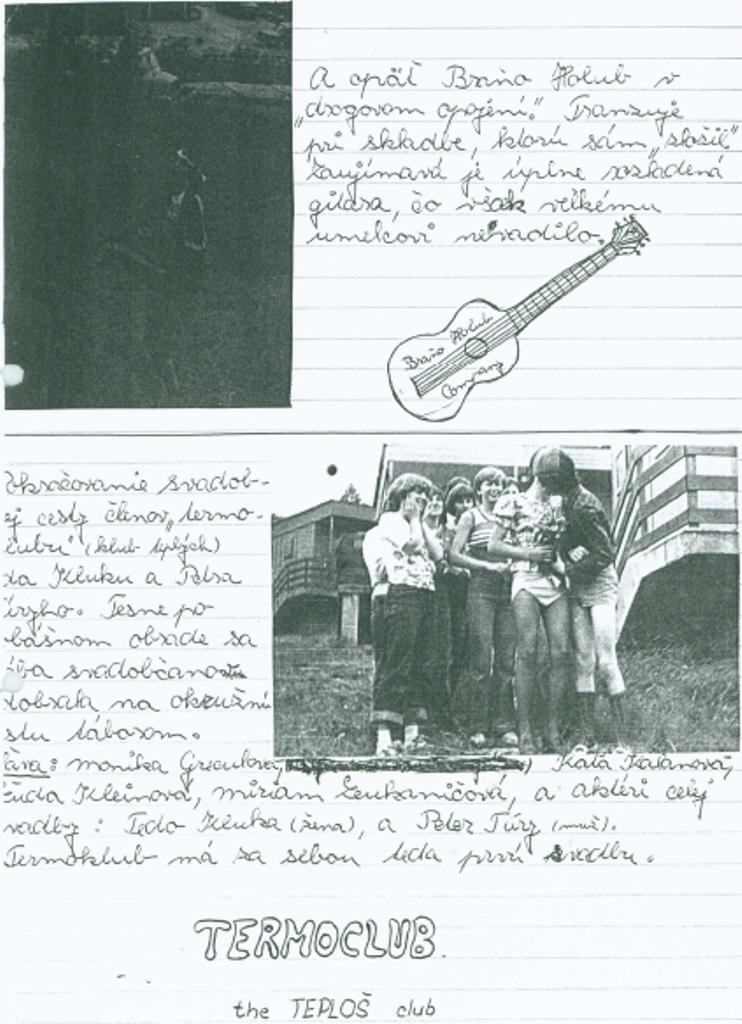 A opäť Braňo Holub v
„drogovom opojení." Tranzuje
pri skladbe, ktorú sám „zložil"
Zaujímavá je úplne rozladená
gitara, čo však veľkému
umelcovi nevadilo.
Braňo Holub
Company
okračovanie svadob-
ej cesty členov „termo-
lubu" (klub teplých)
da Kluku a Petra
ürzho. Tesne po
básnom obrade sa
iba svadobčanov
dobrala na okružnú
stu táborom.
ľava: Monika Greculová, Kata Kalanová,
Ľuda Kleinová, Miriam a aktéri celej
vadby: Tedo Kluka (žena), a Peter Türz (muž).
Termoklub má za sebou teda prvú svadbu.
TERMOCLUB
the TEPLOŠ club